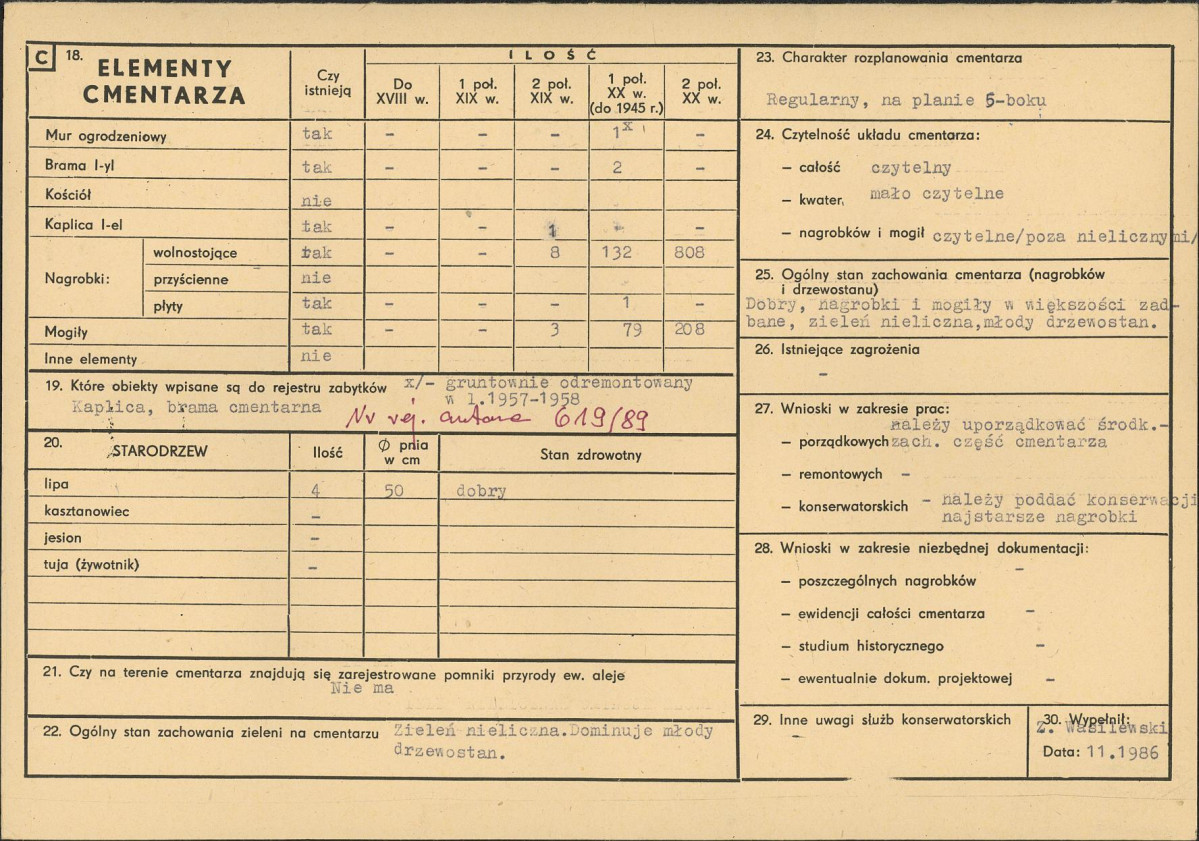 C 18. ELEMENTY CMENTARZA
Czy istnieją
ILOŚĆ
Do XVIII w.
1 poł. XIX w.
2 poł. XIX w.
1 poł. XX w. (do 1945 r.)
2 poł. XX w.
Mur ogrodzeniowy tak – – – 1x –
Brama I-yl tak – – – 2 –
Kościół nie
Kaplica I-el tak – – 1 – –
Nagrobki:
wolnostojące tak – – 8 132 808
przyścienne nie
płyty tak – – – 1 –
Mogiły tak – – 3 79 208
Inne elementy nie
19. Które obiekty wpisane są do rejestru zabytków x/– gruntownie odremontowany
Kaplica, brama cmentarna w l.1957-1958
Nr rej. 619/89
20. STARODRZEW Ilość Ø pnia w cm Stan zdrowotny
lipa 4 50 dobry
kasztanowiec –
jesion –
tuja (żywotnik) –
21. Czy na terenie cmentarza znajdują się zarejestrowane pomniki przyrody ew. aleje
Nie ma
22. Ogólny stan zachowania zieleni na cmentarzu Zieleń nieliczna.Dominuje młody
drzewostan.
23. Charakter rozplanowania cmentarza
Regularny, na planie 5-boku
24. Czytelność układu cmentarza:
– całość czytelny
– kwater, mało czytelne
– nagrobków i mogił czytelne/poza nielicznymi/
25. Ogólny stan zachowania cmentarza (nagrobków
i drzewostanu)
Dobry, nagrobki i mogiły w większości zad-
bane, zieleń nieliczna,młody drzewostan.
26. Istniejące zagrożenia
–
27. Wnioski w zakresie prac:
należy uporządkować środk.-
– porządkowych zach. część cmentarza
– remontowych –
– konserwatorskich – należy poddać konserwacji
najstarsze nagrobki
28. Wnioski w zakresie niezbędnej dokumentacji:
– poszczególnych nagrobków –
– ewidencji całości cmentarza –
– studium historycznego –
– ewentualnie dokum. projektowej –
29. Inne uwagi służb konserwatorskich
–
30. Wypełnił:
Z. Wasilewski
Data: 11.1986